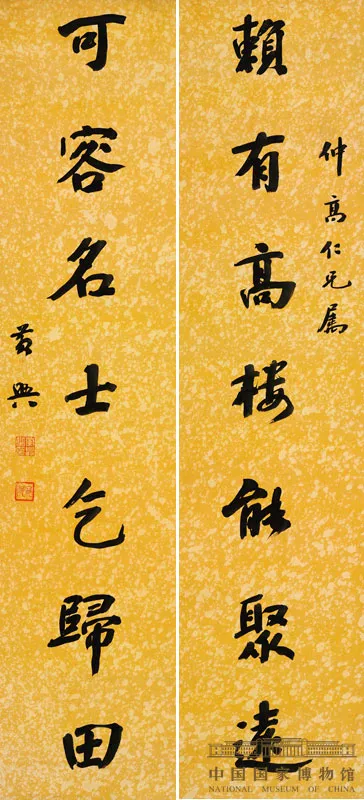 仲高仁兄属
賴有高楼能聚遠
可容名士乞歸田
黄興
中国国家博物馆
NATIONAL MUSEUM OF CHINA